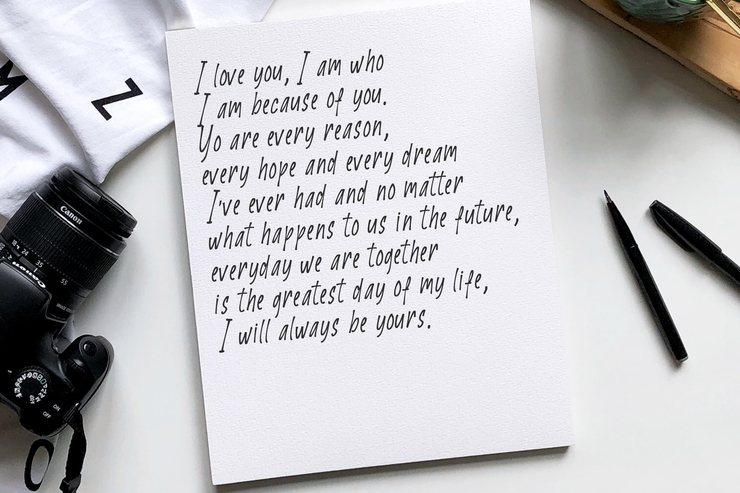 I love you, I am who
I am because of you.
Yo are every reason,
every hope and every dream
I've ever had and no matter
what happens to us in the future,
everyday we are together
is the greatest day of my life,
I will always be yours.
Z
Canon
Canon
ON
OFF